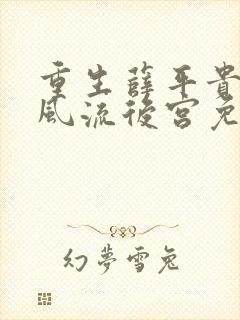 重生薛平貴
風流後宮免
幻夢雪兔